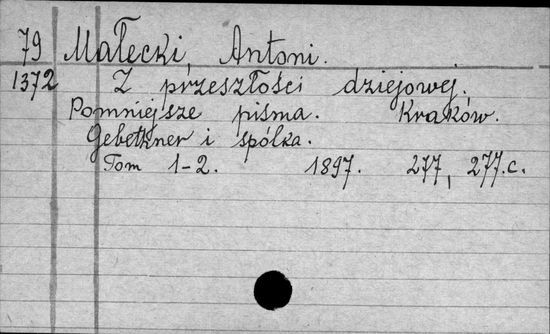 79 Małecki, Antoni.
1372 Z przeszłości dziejowej.
Pomniejsze pisma. Kraków.
Gebethner i spólka.
Tom 1-2. 1897. 277, 277.c.